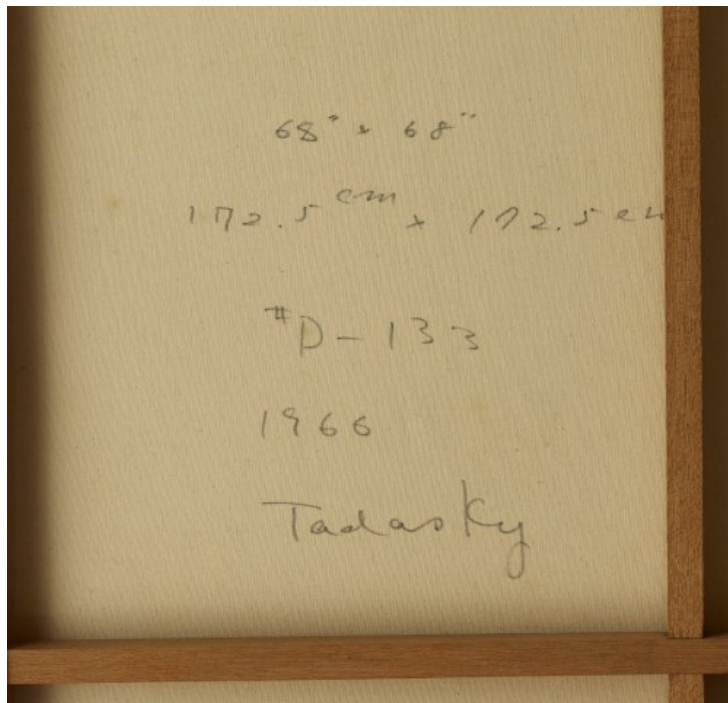 68" x 68"
172.5 cm x 172.5 cm
#D-133
1966
Tadasky